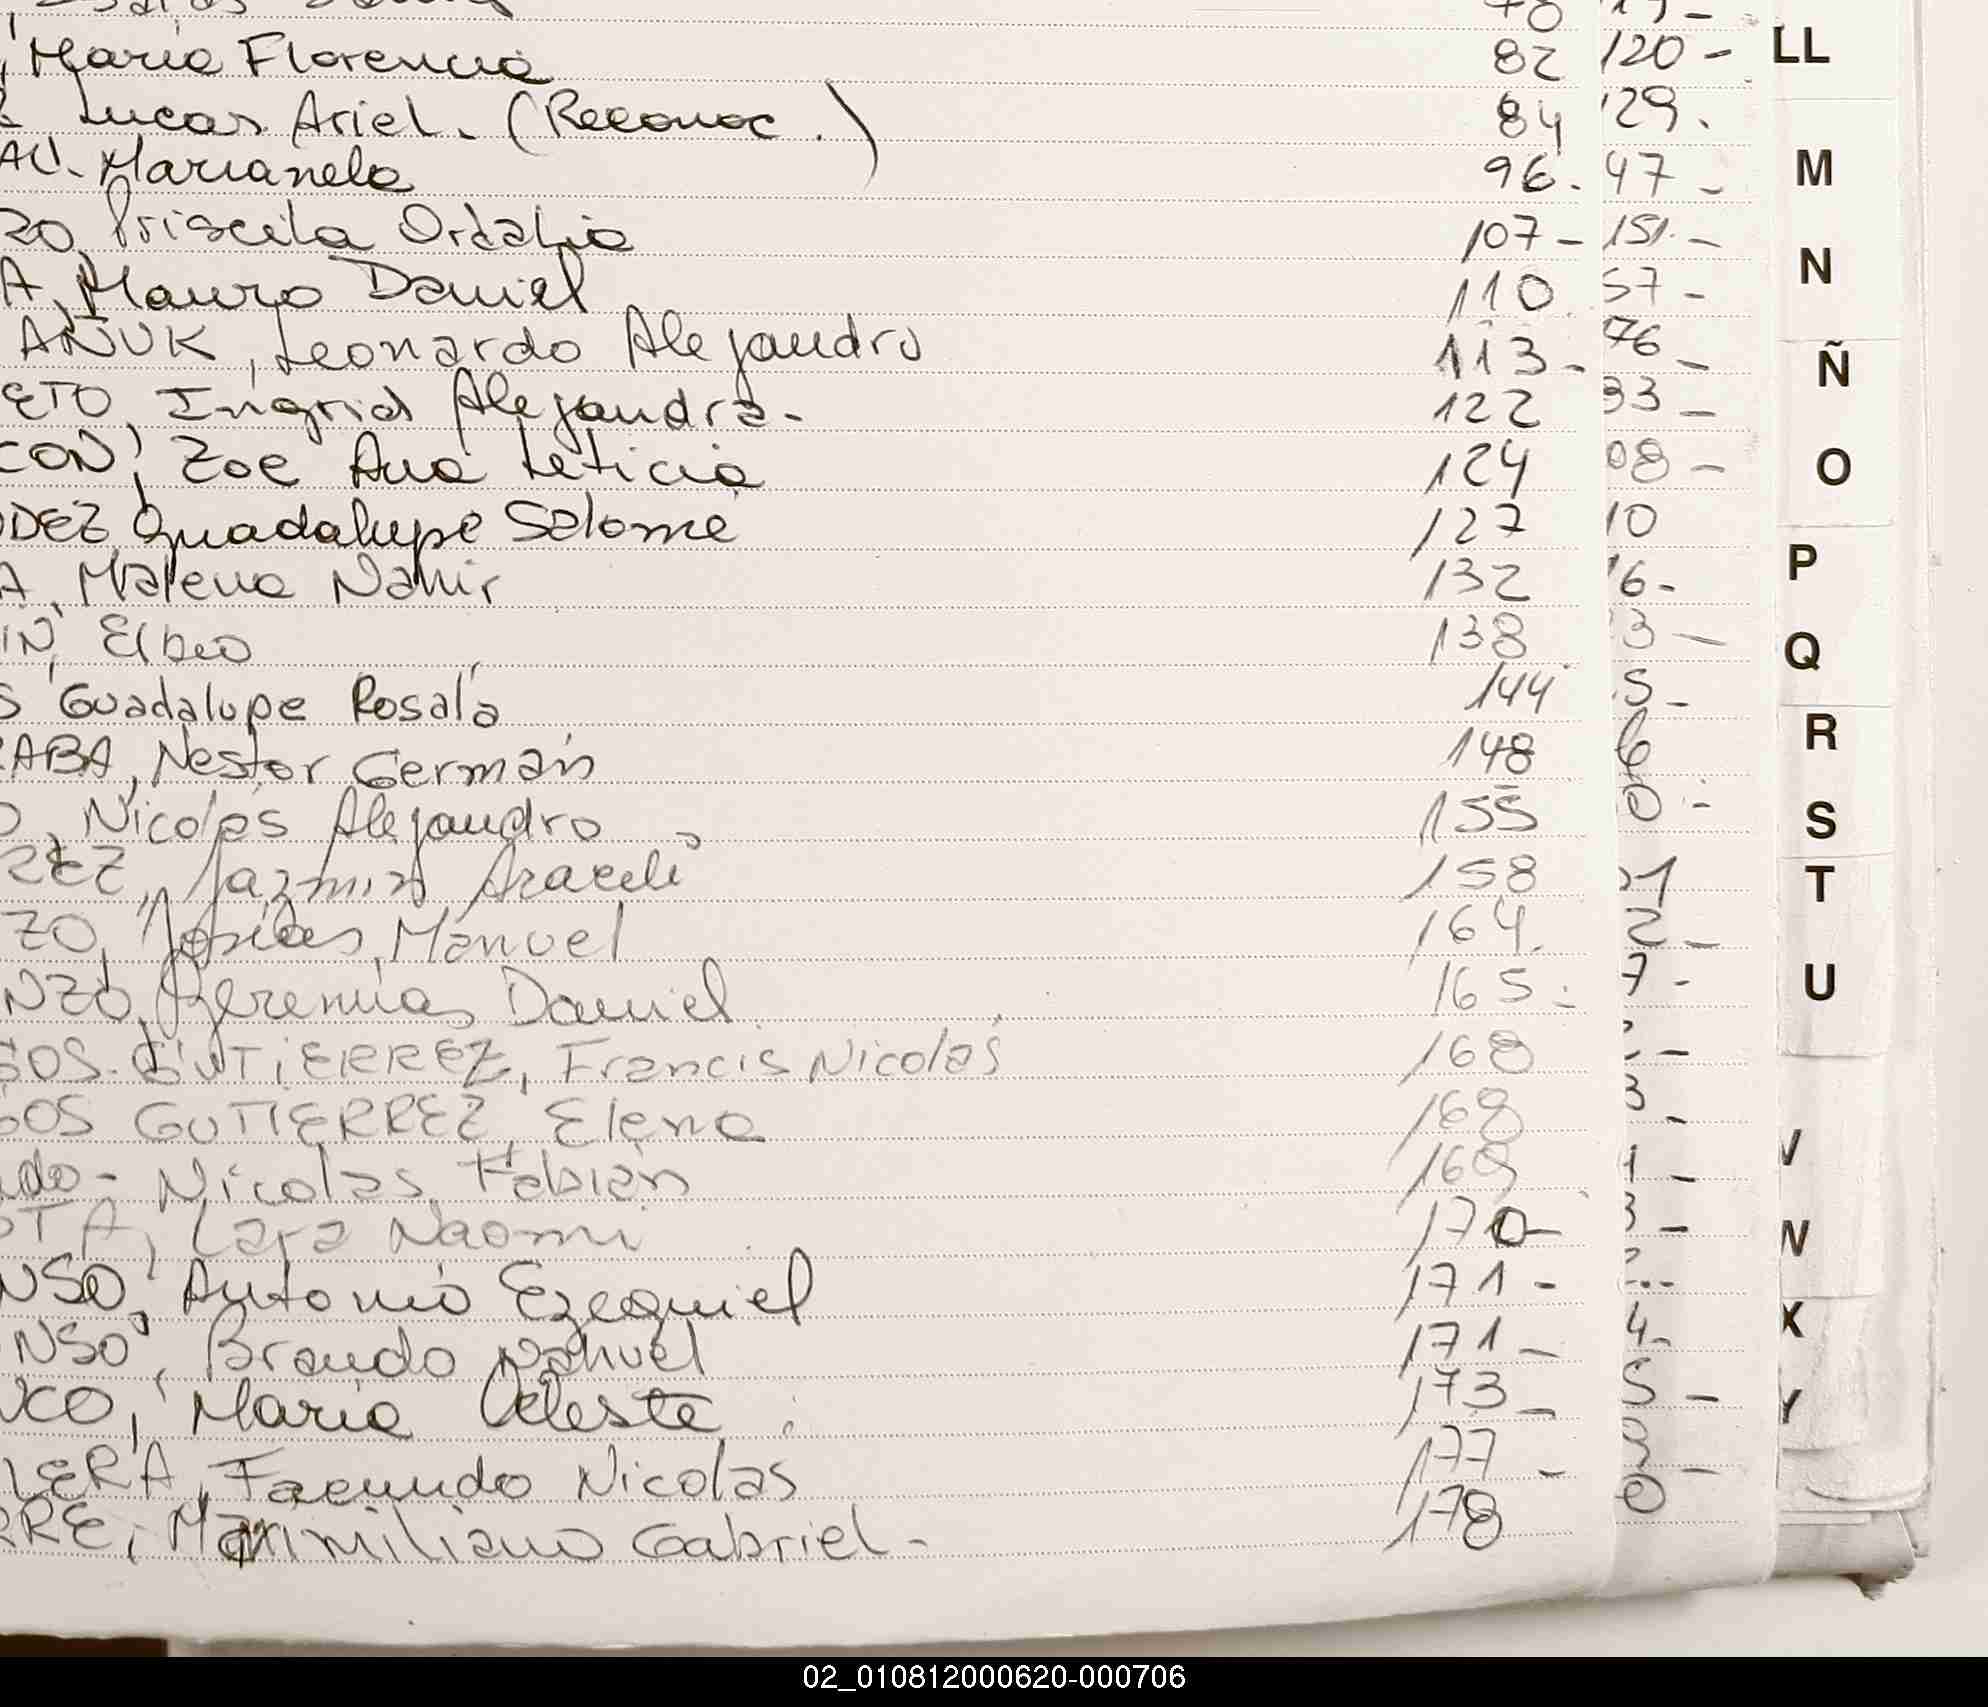 María Florencia 82 120 -
Lucas Ariel. (Reconoc.) 84 129.
AU. Marianela 96. 47 -
ZO, Priscila Ordalia 107 - 151. -
A, Mauro Daniel 110 57 -
ANUK, Leonardo Alejandro 113 - 76 -
ETO, Ingrid Alejandra - 122 33 -
CON, Zoe Ana Leticia 124 08 -
DEZ, Guadalupe Salomé 127 10
A, Malena Nahir 132 16 -
IN, Elbio 138 3 -
S Guadalupe Rosalá 144 5 -
ABA, Nestor Germán 148 6
O, Nicolás Alejandro 155 0 -
REZ, Jazmín Araceli 158 1
ZO, Josías, Manuel 164. 2 -
NZO, Jeremías Daniel 165 - 7 -
GOS. GUTIERREZ, Francis Nicolás 168 -
GOS GUTIERREZ, Elena 168 3 -
do - Nicolas Fabián 169 1 -
TA, Lara Naomi 170 - 3 -
NSO, Antonio Ezequiel 171 -
NSO, Brando Nahuel 171 - 4 -
CO, María Celeste 173 - 5 -
LERA, Facundo Nicolas 177 -
RRE, Maximiliano Gabriel - 178 0
LL
M
N
Ñ
O
P
Q
R
S
T
U
V
W
X
Y
02_010812000620-000706